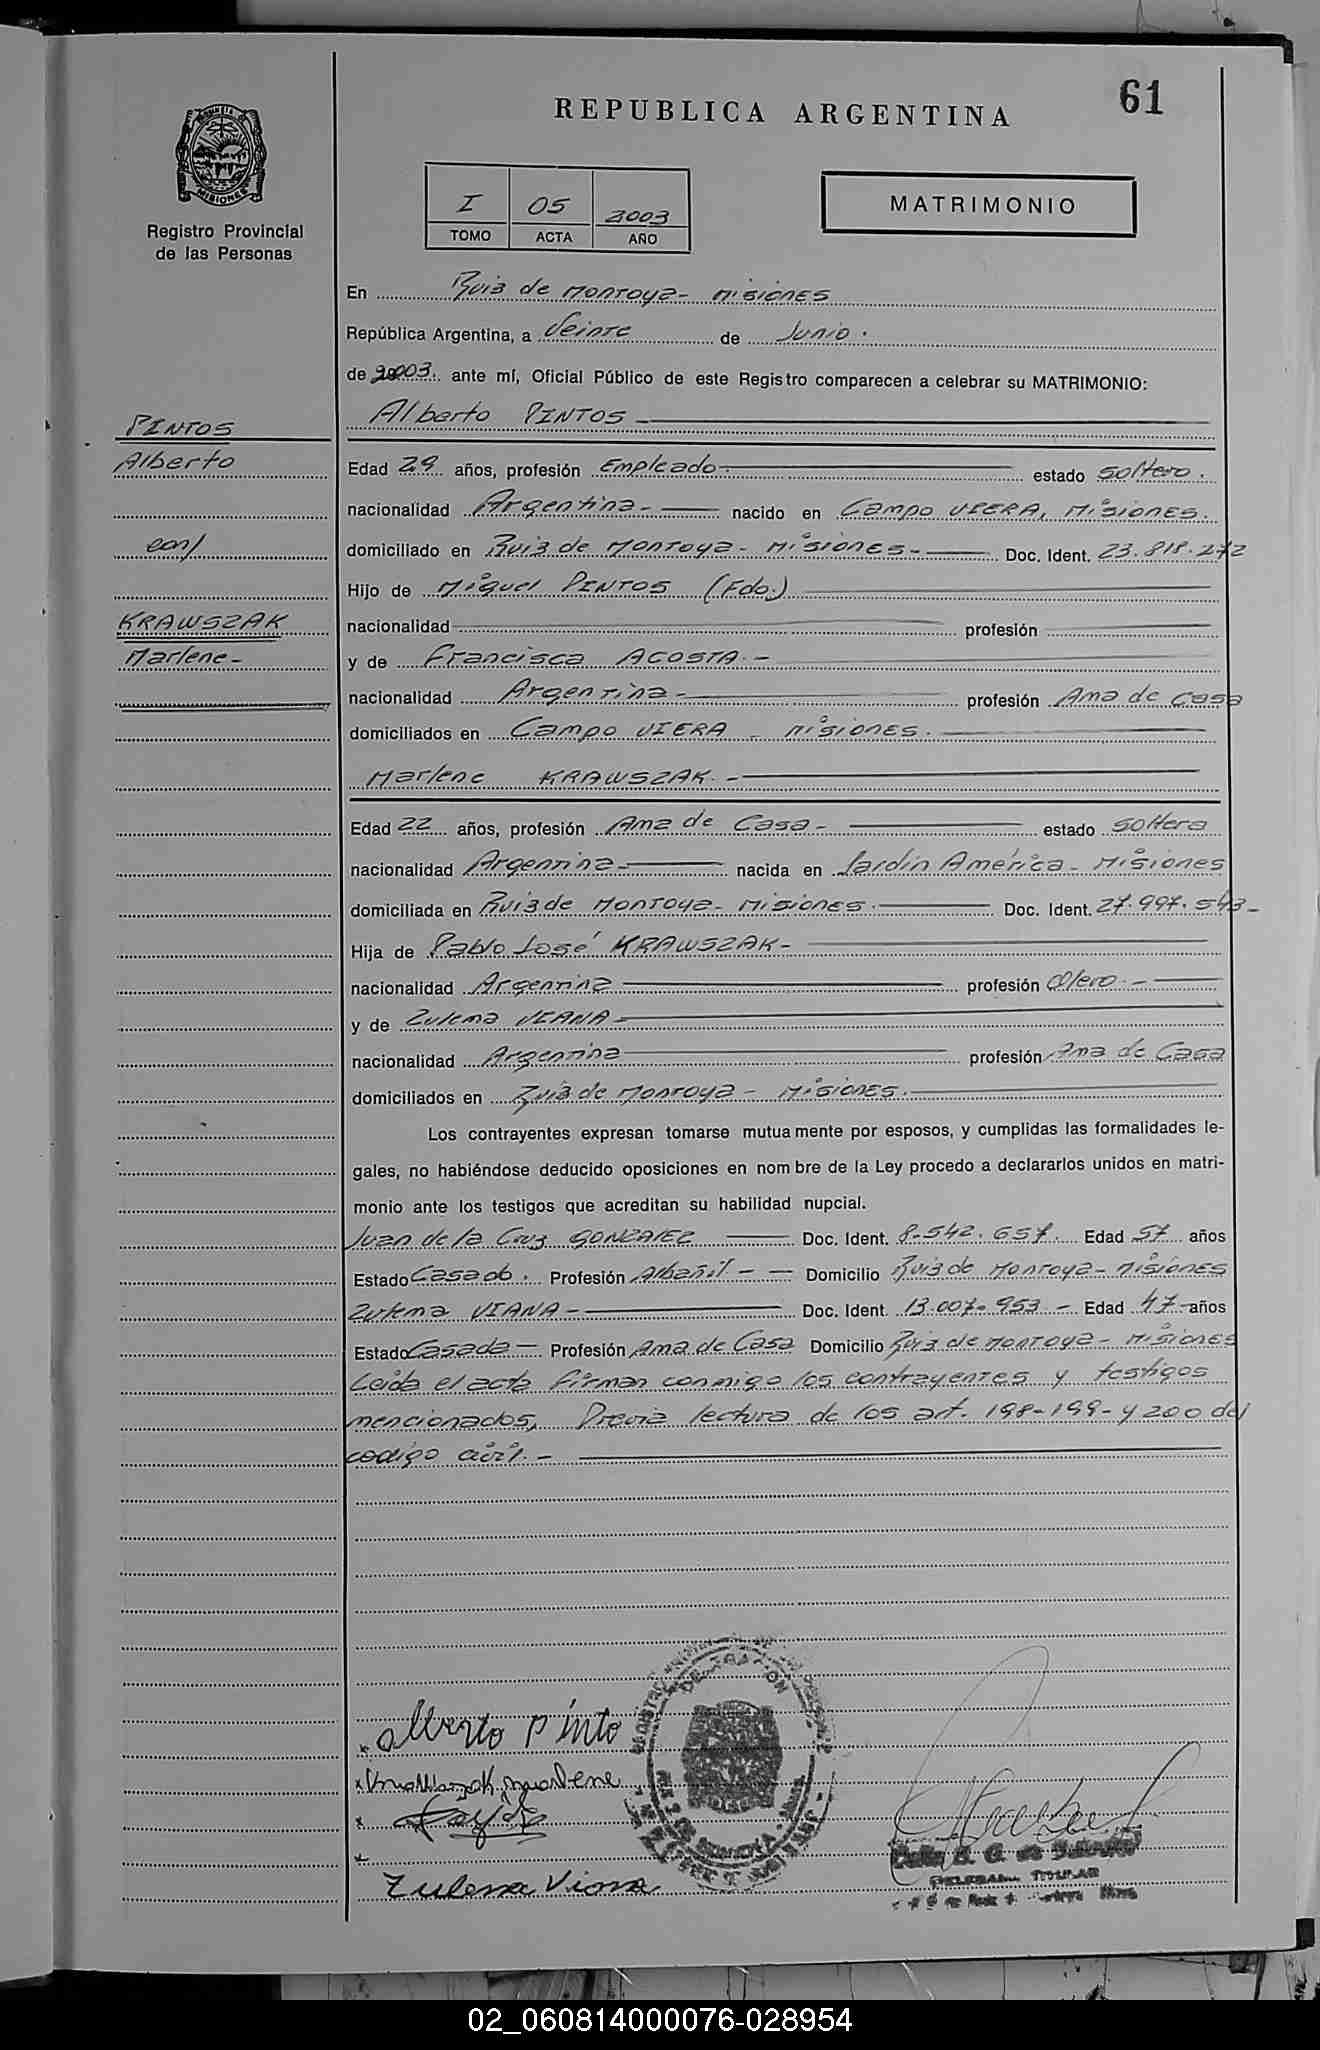 61
REPUBLICA ARGENTINA
MISIONES
Registro Provincial
de las Personas
I 05 2003
TOMO ACTA AÑO
MATRIMONIO
En Ruiz de Montoya - Misiones
República Argentina, a Veinte de Junio.
de 2003. ante mí, Oficial Público de este Registro comparecen a celebrar su MATRIMONIO:
Alberto PINTOS
PINTOS
Alberto
con/
KRAWSZAK
Marlene-
Edad 29 años, profesión Empleado estado soltero.
nacionalidad Argentina - nacido en Campo VIERA, Misiones.
domiciliado en Ruiz de Montoya - Misiones - Doc. Ident. 23.818.272
Hijo de Miguel PINTOS (Fdo.)
nacionalidad profesión
y de Francisca ACOSTA.-
nacionalidad Argentina - profesión Ama de Casa
domiciliados en Campo VIERA - Misiones.
Marlene KRAWSZAK.-
Edad 22 años, profesión Ama de Casa - estado soltera
nacionalidad Argentina - nacida en Jardín América - Misiones
domiciliada en Ruiz de Montoya - Misiones. Doc. Ident. 27.997.543-
Hija de Pablo José KRAWSZAK-
nacionalidad Argentina profesión Olero.-
y de Zulema VIANA-
nacionalidad Argentina profesión Ama de Casa
domiciliados en Ruiz de Montoya - Misiones.
Los contrayentes expresan tomarse mutuamente por esposos, y cumplidas las formalidades le-
gales, no habiéndose deducido oposiciones en nombre de la Ley procedo a declararlos unidos en matri-
monio ante los testigos que acreditan su habilidad nupcial.
Juan de la Cruz GONZALEZ Doc. Ident. 8.542.657. Edad 57 años
Estado Casado. Profesión Albañil - - Domicilio Ruiz de Montoya - Misiones
Zulema VIANA - Doc. Ident. 13.007.953 - Edad 47 años
Estado Casada - Profesión Ama de Casa Domicilio Ruiz de Montoya - Misiones
Leída el acta firman conmigo los contrayentes y testigos
mencionados, Previa lectura de los art. 198-199- y 200 del
codigo civil.-
Alberto Pinto
marlene
Zulema Viana
TITULAR
02_060814000076-028954